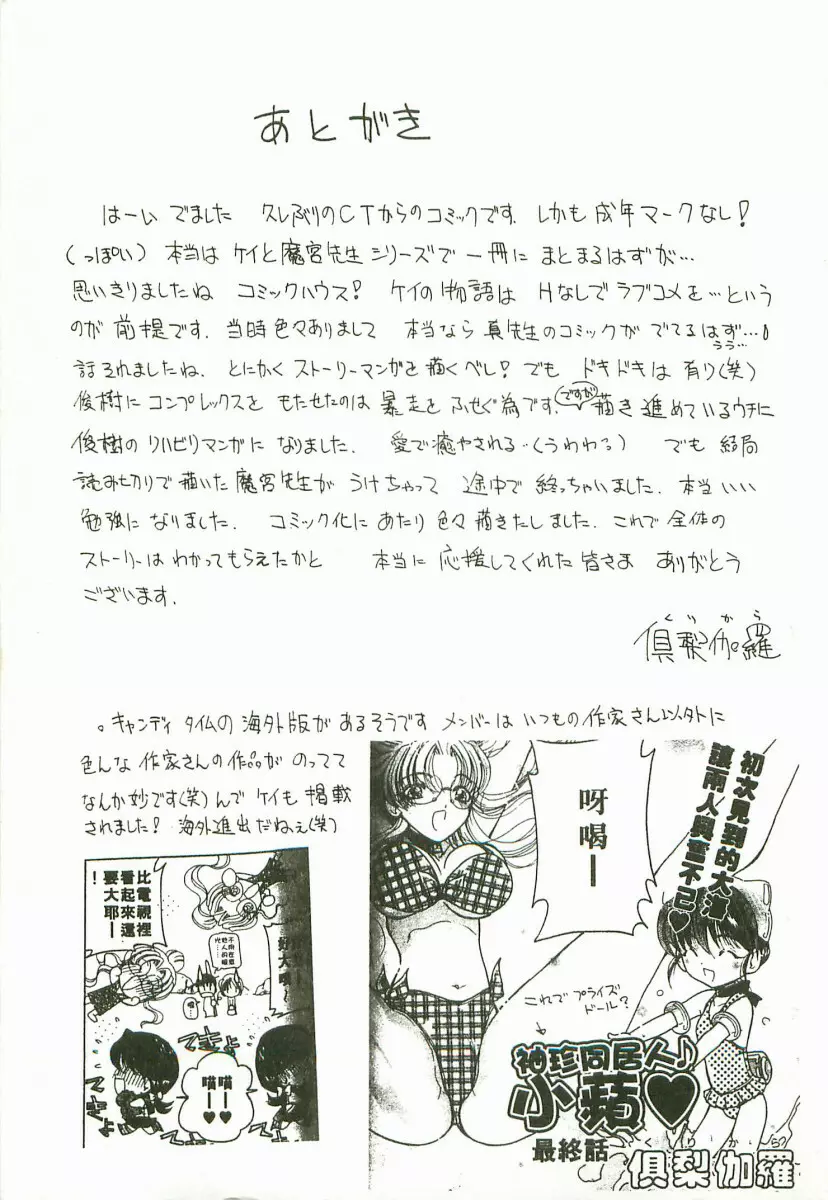 あとがき
はーい でました 久しぶりのCTからのコミックです. しかも 成年マークなし!
(っぽい) 本当は ケイと魔宮先生 シリーズで 一冊に まとまるはずが…
思いきりましたね コミックハウス! ケイの物語は Hなしで ラブコメを…という
のが 前提です. 当時色々ありまして 本当なら 真先生のコミックが でてるはず…
うう…
話それましたね. とにかく ストーリーマンガを 描くべし! でも ドキドキは 有り(笑)
俊樹に コンプレックスを もたせたのは 暴走を ふせぐ為です. ですが 描き進めているウチに
俊樹の リハビリマンガに なりました. 愛で癒やされる‥(うわわっ) でも 結局
読み切りで 描いた 魔宮先生が うけちゃって 途中で 終っちゃいました. 本当いい
勉強に なりました. コミック化に あたり 色々 描きたしました. これで 全体の
ストーリーは わかってもらえたかと 本当に 応援してくれた 皆さま ありがとう
ございます.
くりから
倶梨伽羅
。キャンディ タイムの 海外版が あるそうです メンバーは いつもの 作家さん以外に
色んな 作家さんの 作品が のってて
なんか妙です(笑) んで ケイも 掲載
されました! 海外進出だねぇ(笑)
初次見到的大海
讓兩人興奮不已♥
呀喝ー
これで プライズ
ドール?
袖珍同居人♪
小蘋♥
最終話
くりから
倶梨伽羅
比電視裡
看起來還
要大耶ー
!
好大哦ー
不用在意
他人的眼
光……
てきょ
てきょ
てきょ
喵ー♥
喵ー♥